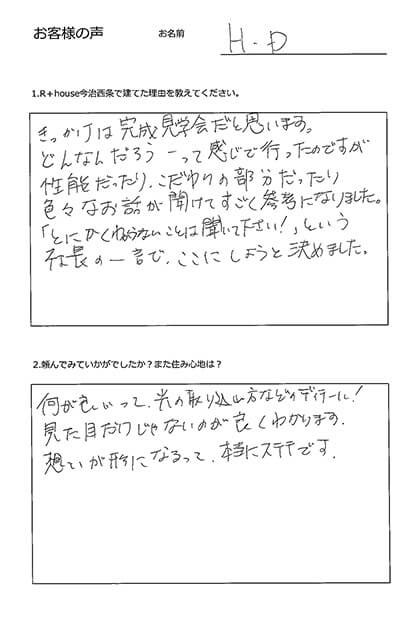 お客様の声
お名前 H.D
1.R+house今治西条で建てた理由を教えてください。
きっかけは完成見学会だと思います。
どんなんだろうーって感じで行ったのですが
性能だったり、こだわりの部分だったり
色々なお話が聞けてすごく参考になりました。
「とにかくわからないことは聞いて下さい!」という
社長の一言で、ここにしようと決めました。
2.頼んでみていかがでしたか?また住み心地は?
何が良いって、光の取り込み方などのディテール!
見た目だけじゃないのが良くわかります。
想いが形になるって、本当にステキです。